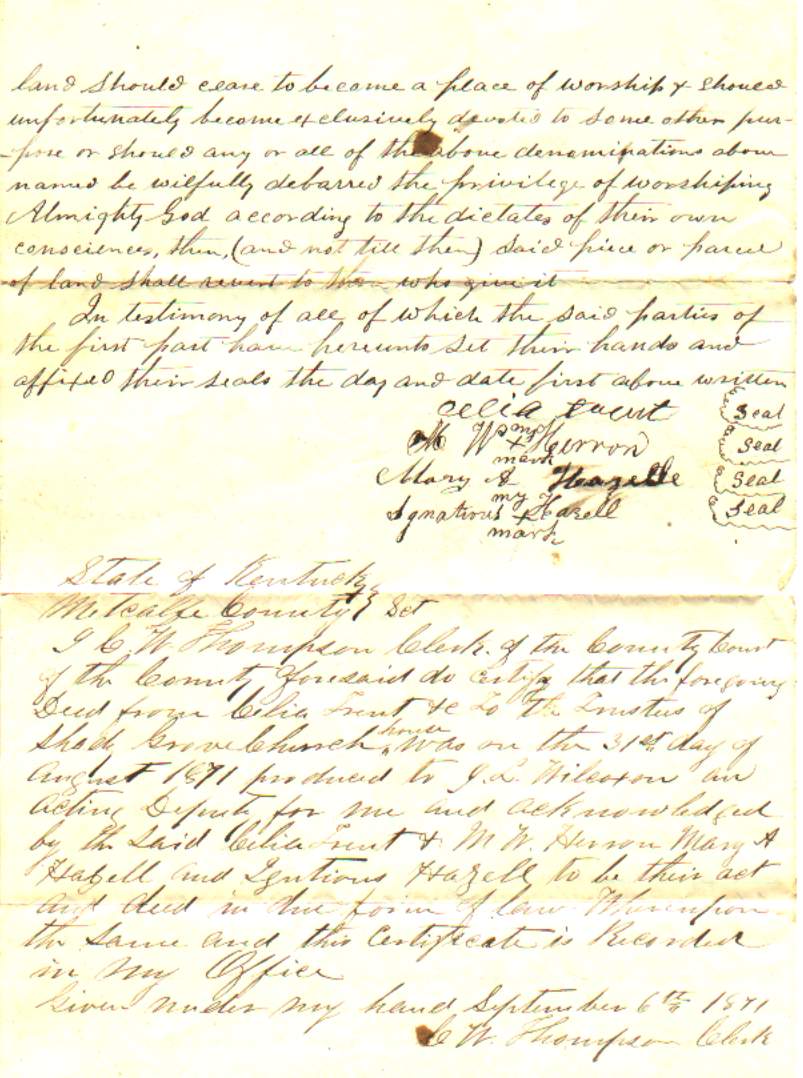 land should cease to become a place of worship & should
unfortunately become exclusively devoted to some other pur-
-pose or should any or all of the above denominations above
named be wilfully debarred the privilege of worshiping
Almighty God according to the dictates of their own
consciences, then, (and not till then) said piece or parcel
of land shall revert to them who give it
In testimony of all of which the said parties of
the first part have hereunto set their hands and
affixed their seals the day and date first above written
Celia Trent Seal
M W my + mark Herron Seal
Mary A Hazelle Seal
Ignatious my + mark Hazell Seal
State of Kentucky
Metcalfe County } Sct
I C. W Thompson Clerk of the County Court
of the County foresaid do certify that the foregoing
Deed from Celia Trent &c To the Trustus of
Shady Grove Church house was on the 31st day of
August 1871 produced to J. L. Wilcoxon an
acting Deputy for me and acknowledged
by the said Celia Trent & M W. Herron Mary A
Hazell and Igntious Hazell to be their act
and deed in due form of law Whereupon
the same and this certificate is Recorded
in my Office
Given under my hand September 6th 1871
C W. Thompson Clerk